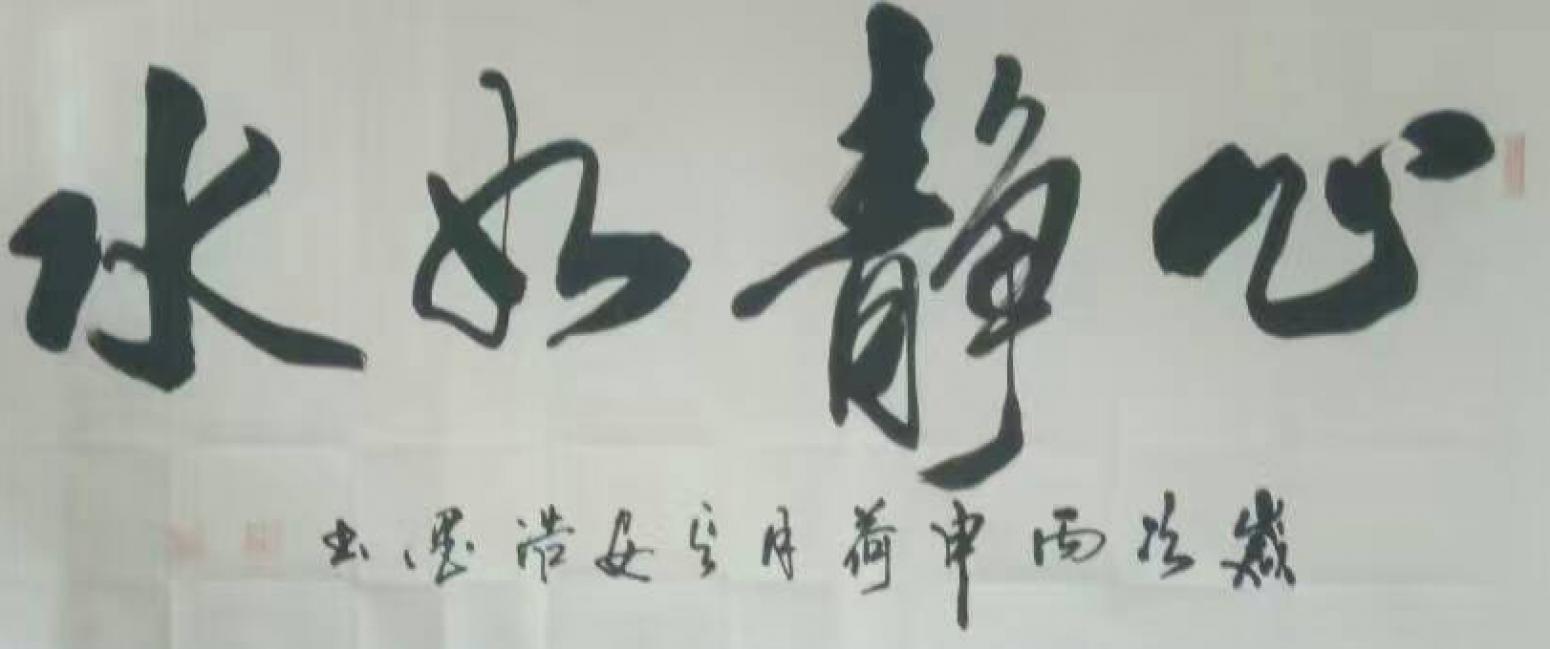 心静如水
岁次丙申荷月于安浩墨书